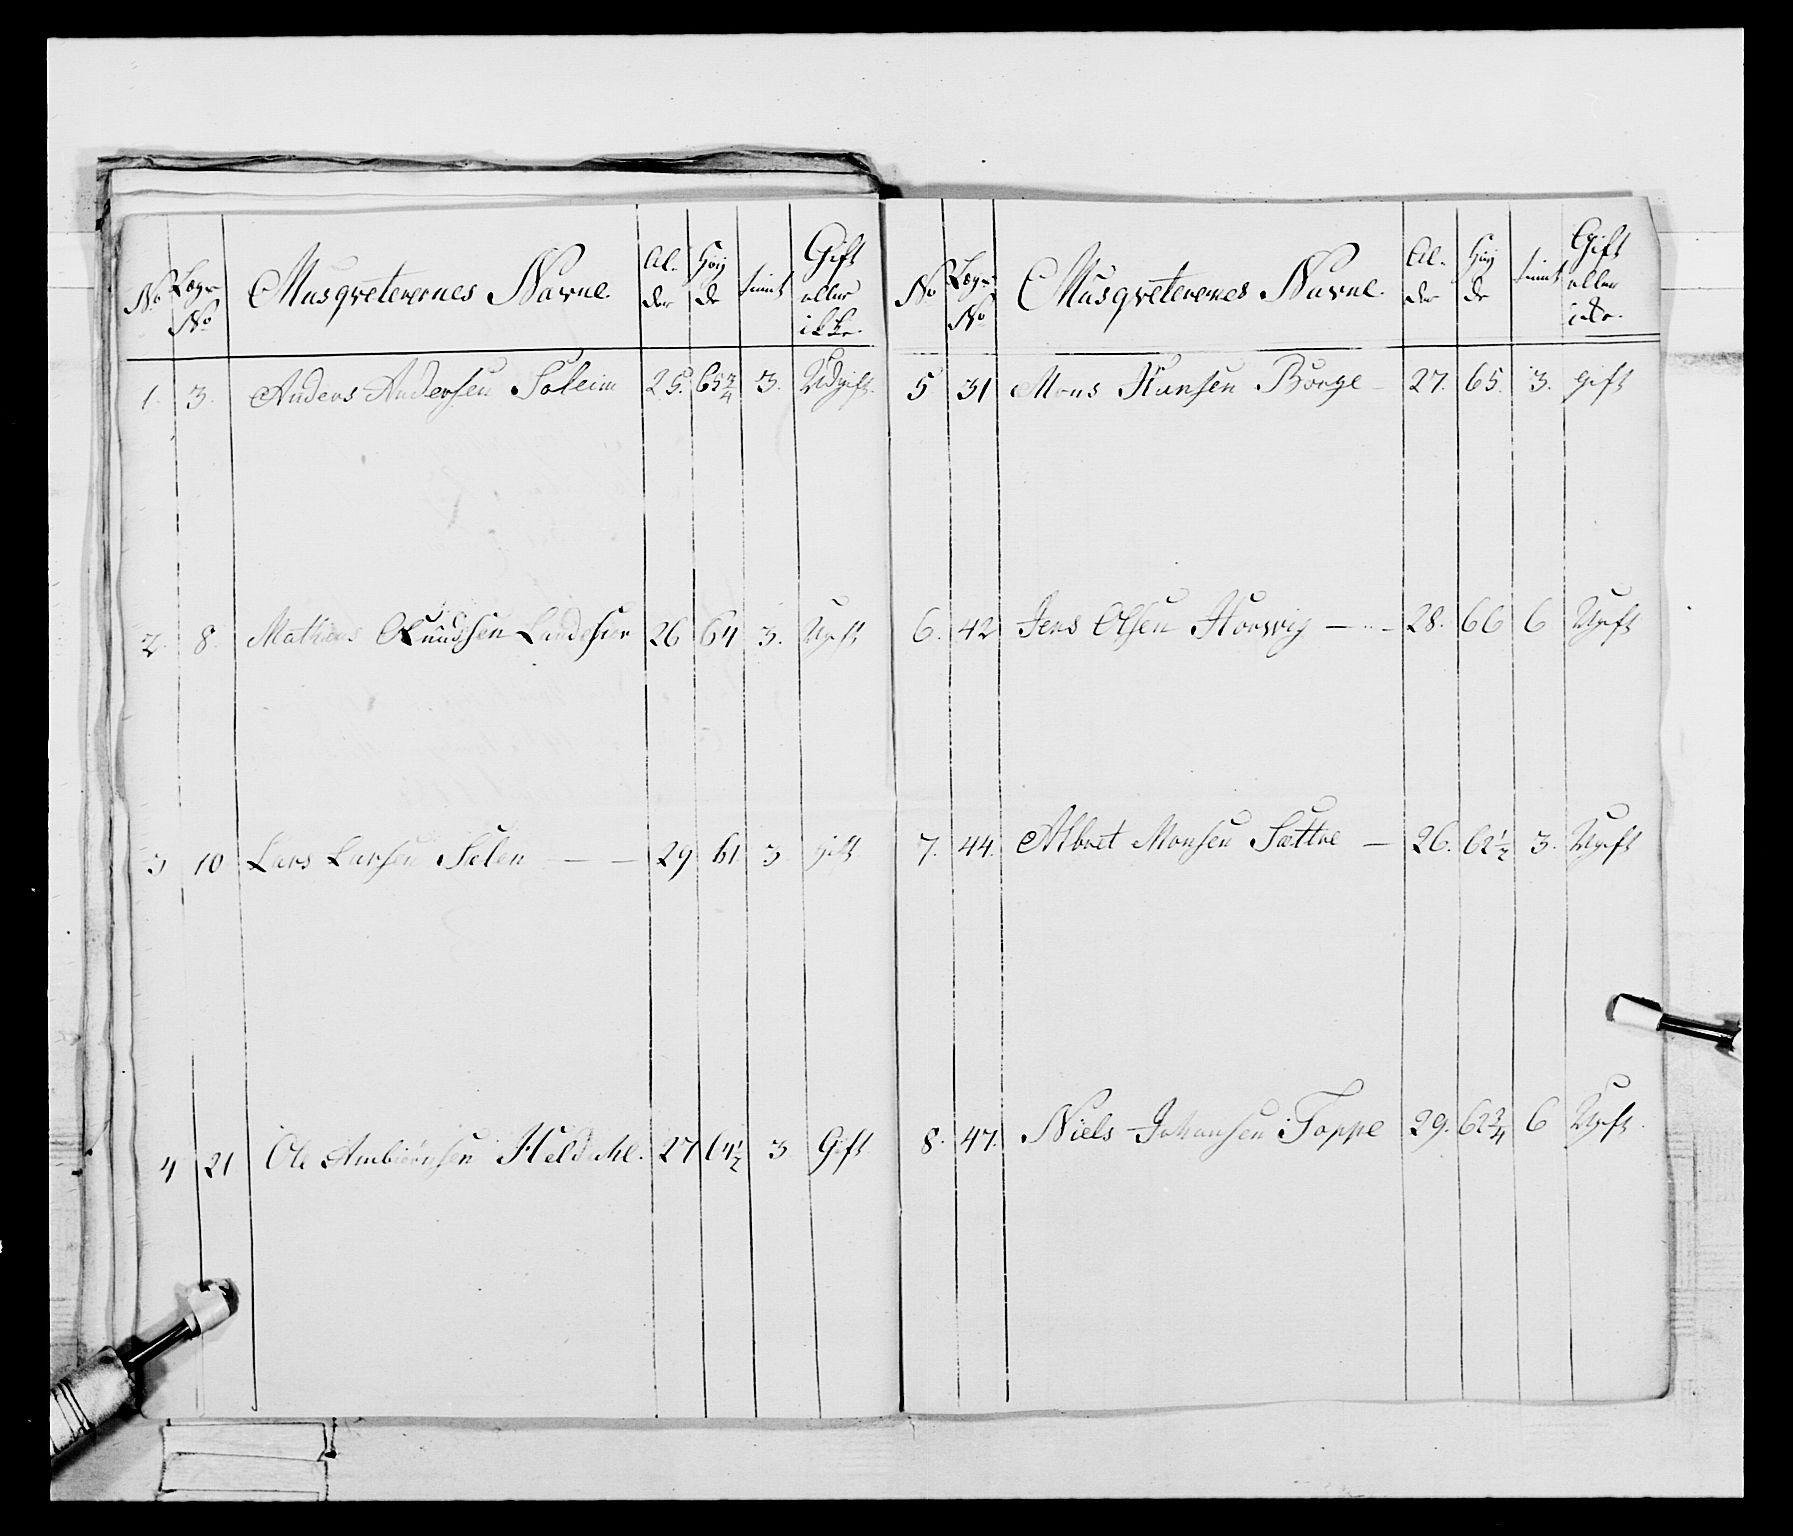 No Lægs No Musqveterernes Navne. Al- der Høy de tient Gift eller ikke.
1. 3. Anders Andersen Soleim 25. 65 3/4 3. Udgift.
2. 8. Mathias Knudsen 26 64 3. Ugift
3 10 Lars Larsen Selen — — 29 61 3 gift
4 21 Ole Ambiörnsen Heldahl. 27 64 1/2 3 Gift
No Lægs No Musqveterernes Navne. Al- der Høy de tient Gift eller ikke.
5 31 Mons Hansen Borge — 27. 65. 3. gift
6. 42 Jens Olsen Horvig — - — 28. 66 6 Ugift
7. 44. Albret Monsen Sættre — 26. 62 1/2 3. Ugift
8. 47. Niels Johansen Toppe 29. 62 3/4 6 Ugift.